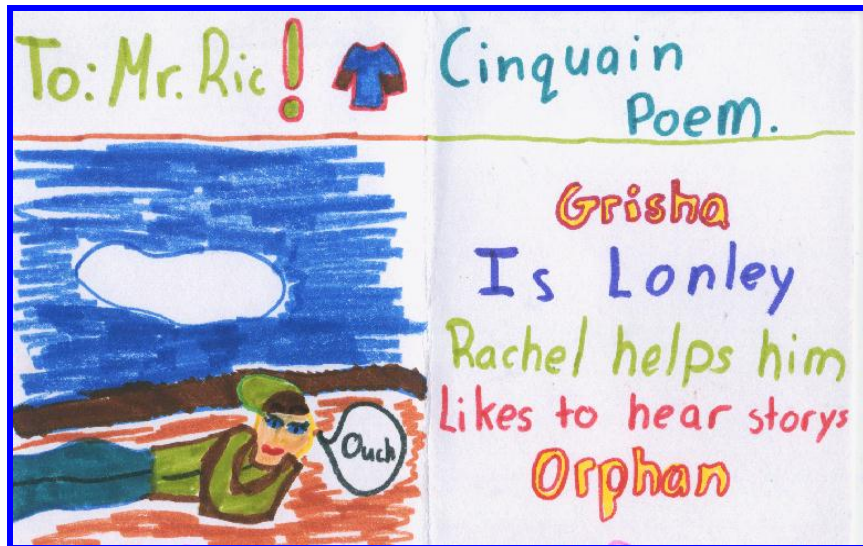 To: Mr. Ric!
Ouch
Cinquain
Poem.
Grisha
Is Lonley
Rachel helps him
Likes to hear storys
Orphan